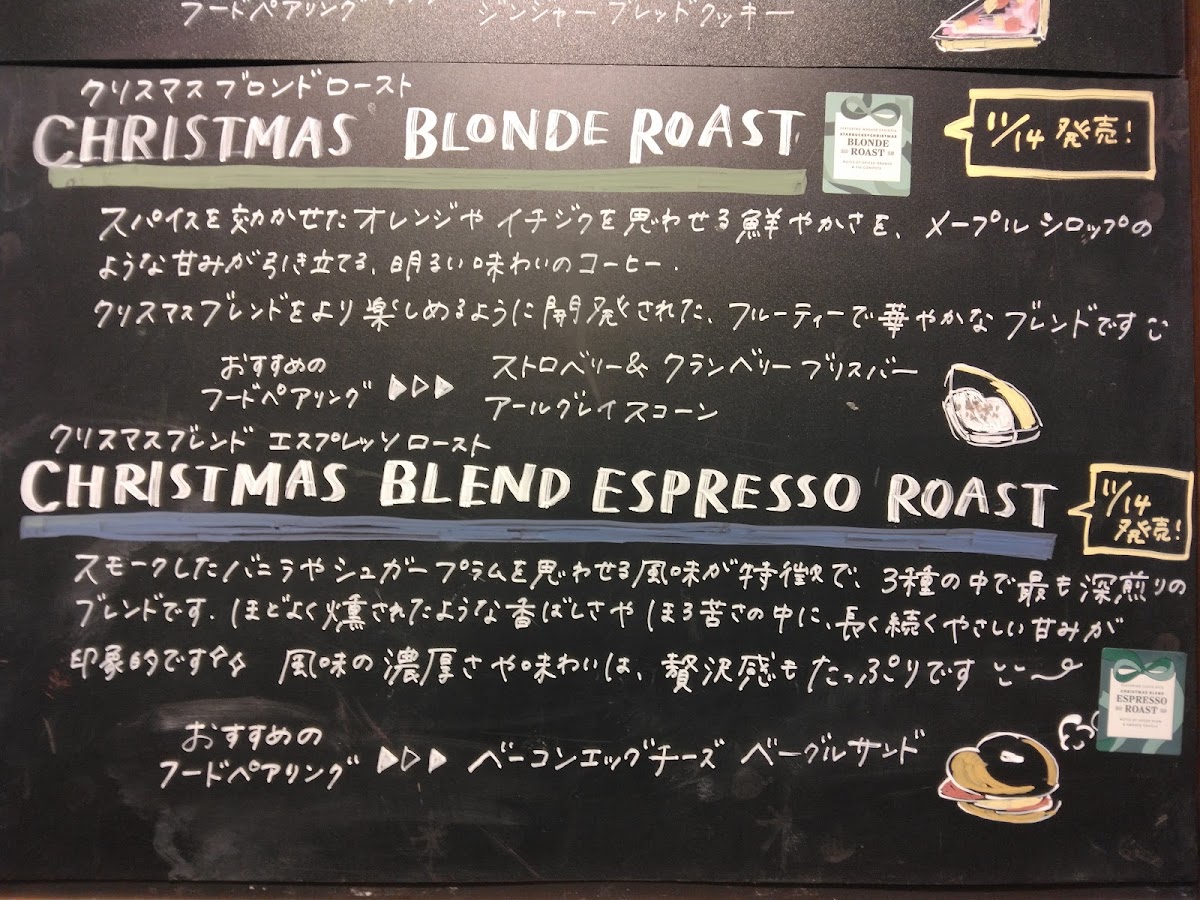 フードペアリング ジンジャーブレッドクッキー
クリスマス ブロンド ロースト
CHRISTMAS BLONDE ROAST
11/14 発売!
BLONDE
ROAST
スパイスを効かせたオレンジや イチジクを思わせる鮮やかさを、メープルシロップの
ような甘みが引き立てる、明るい味わいのコーヒー.
クリスマスブレンドをより楽しめるように開発された、フルーティーで華やかなブレンドです
おすすめの
フードペアリング ▷▷▷
ストロベリー& クランベリーブリスバー
アールグレイスコーン
クリスマスブレンド エスプレッソ ロースト
CHRISTMAS BLEND ESPRESSO ROAST
11/14
発売!
スモークしたバニラやシュガープラムを思わせる風味が特徴で、3種の中で最も深煎りの
ブレンドです. ほどよく燻されたような香ばしさや ほろ苦さの中に、長く続くやさしい甘みが
印象的です 風味の濃厚さや味わいは、贅沢感もたっぷりです
CHRISTMAS BLEND
ESPRESSO
ROAST
おすすめの
フードペアリング ▷▷▷ ベーコンエッグチーズ ベーグルサンド